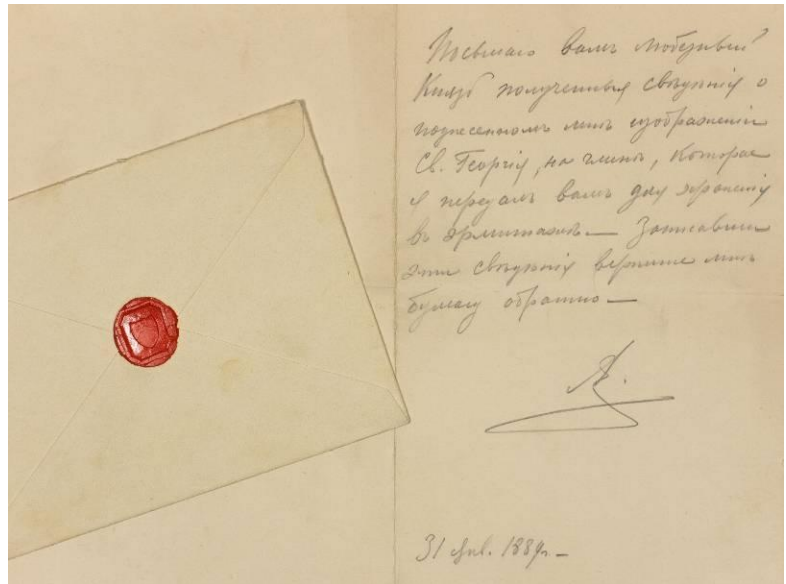 Посылаю Вамъ любезный
Князь полученныя свѣдѣнія о
поднесенномъ мнѣ изображеніи
Св. Георгія, на
я передалъ Вамъ для храненія
въ Эрмитажѣ. — Записавши
эти свѣдѣнія верните мнѣ
бумагу обратно —
А.
31 Янв. 1889 г. —